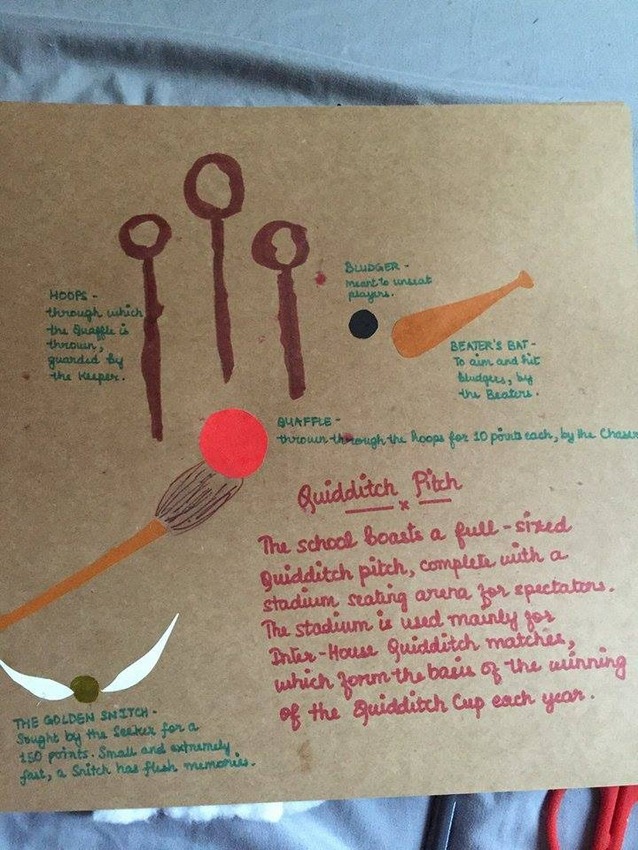 HOOPS -
through which
the Quaffle is
thrown,
guarded by
the Keeper.
BLUDGER -
meant to unseat
players.
BEATER'S BAT -
To aim and hit
Bludgers, by
the Beaters.
QUAFFLE -
thrown through the hoops for 10 points each, by the Chaser
Quidditch Pitch
x
The school boasts a full-sized
Quidditch pitch, complete with a
stadium seating arena for spectators.
The stadium is used mainly for
Inter-House Quidditch matches,
which form the basis of the winning
of the Quidditch Cup each year.
THE GOLDEN SNITCH -
Sought by the Seeker for a
150 points. Small and extremely
fast, a Snitch has flesh memories.